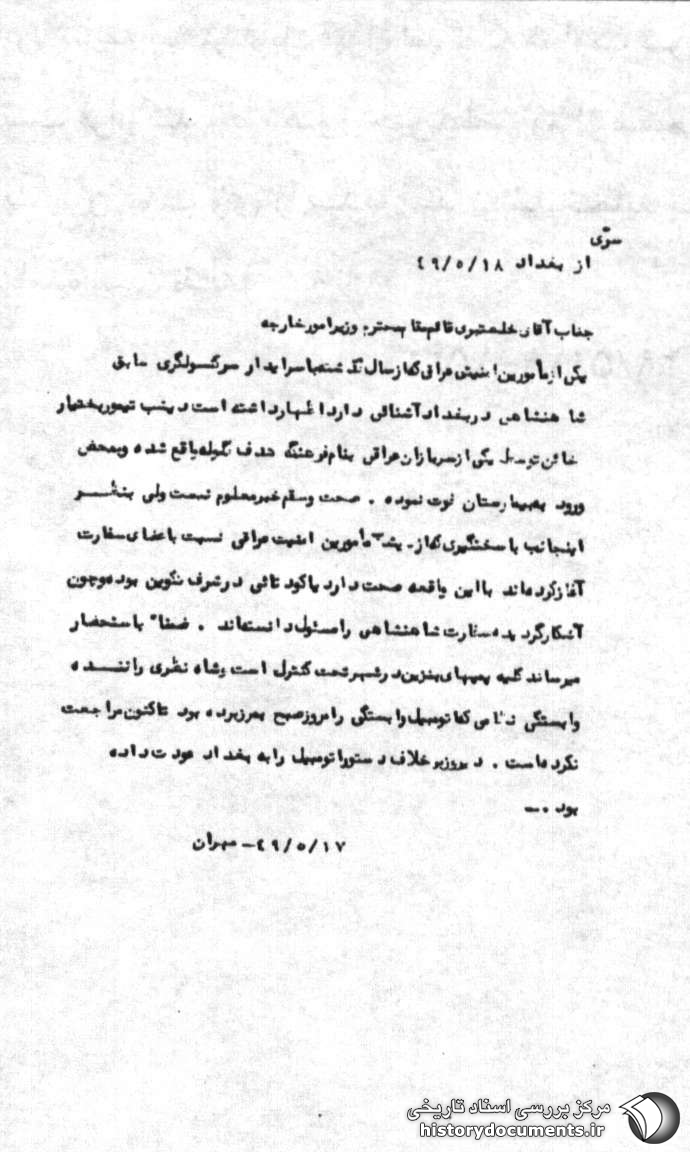 سرّی
از بغداد ۴۹/۵/۱۸
جناب آقای خلعتبری قائم‌مقام محترم وزیر امورخارجه
یکی از مأمورین امنیتی عراقی که از سال گذشته با سرایدار سرکنسولگری سابق
شاهنشاهی در بغداد آشنائی دارد اظهار داشته است دیشب تیمور بختیار
خائن توسط یکی از سربازان عراقی بنام فرهنگ هدف گلوله واقع شده و بمحض
ورود به بیمارستان فوت نموده . صحت و سقم خبر معلوم نیست ولی بنظر
اینجانب با سختگیری که از مأمورین امنیت عراقی نسبت باعضای سفارت
آغاز کرده‌اند با این واقعه صحت دارد یا کودتائی در شرف تکوین بوده و چون
آشکار گردیده سفارت شاهنشاهی را مسئول دانسته‌اند . ضمناً باستحضار
میرساند کلیه پمپهای بنزین در شهر تحت کنترل است و شاه نظری راننده
وابستگی نظامی که اتومبیل وابستگی را امروز صبح بمرز برده بود تاکنون مراجعت
نکرده است . دیروز برخلاف دستور اتومبیل را به بغداد عودت داده
بود .ــ
۴۹/۵/۱۷ــ مهران
مرکز بررسی اسناد تاریخی
historydocuments.ir